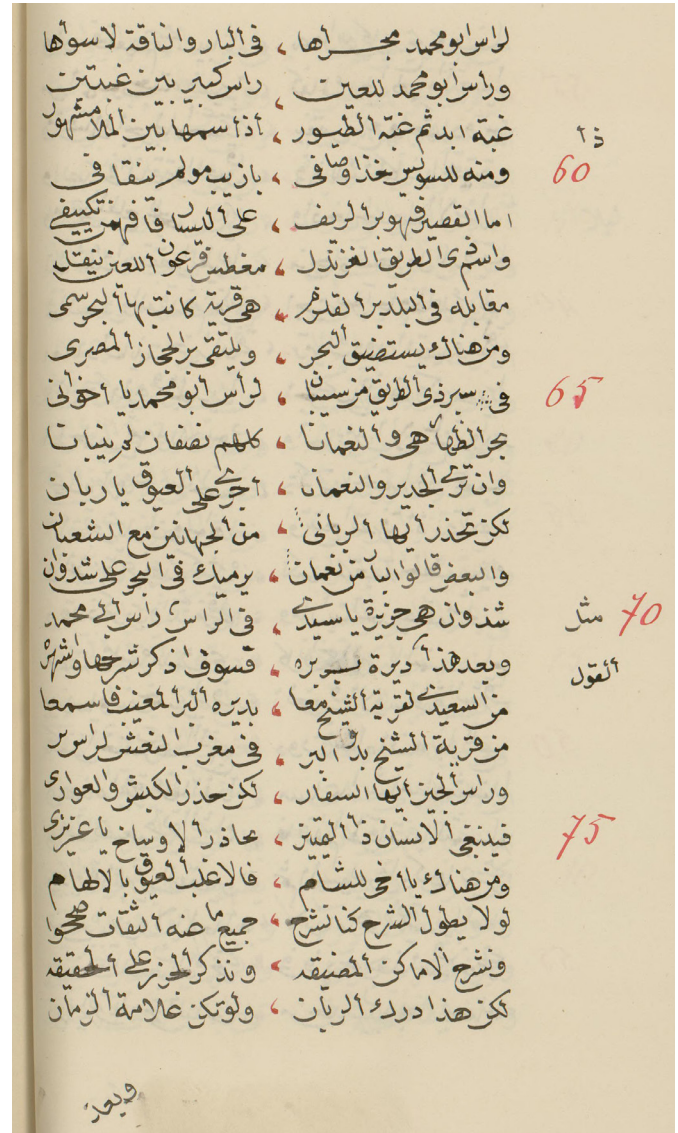 لراس ابو محمد مجراها ، في البار والناقة لاسواها
وراس ابو محمد للعين ، راس كبير بين غبتين
غبة ابد ثم غبة الطيور ، أذا سمها بين الملا مشهور ذا
ومنه للسويس خذ اوصافى ، بازيب مولم ينقافى 60
اما القصير فهو بر الريف ، على اليسار فافهمن تكييفي
واسم ذى الطريق الغرندل ، مغطس فرعون اللعين ينقل
مقابله في البلد بر القلزم ، هى قرية كانت بها البحر سمى
ومن هناك يستضيق البحر ، ويلتقى بر الحجاز المصرى
فى سير ذى الطريق من سينان ، لرأس أبو محمد يا أخوانى 65
عجر الظهاهى والنعمانا ، كلهم نصفان لم ينباتا
وان ترى الجدير والنعمان ، أجرى على العيوق ياربان
لكن تحذر أيها الربانى ، من الجهانين مع الشعبان
والبعض قالوا البا من نعمان ، يرميك في البحر على شذوان
شذوان هى جزيرة ياسيدى ، فى الراس راس ابي محمد مثل 70
وبعد هذا ديرة بربره ، فسوف اذكر شرحها واشهره القول
من السعيدى لقرية الشيخ معا ، بديره البر المغيب فاسمعا
من قرية الشيخ بدو البر ، في مغرب النعش لراس بر
وراس الجين أيها السفار ، لكن حذر الكبش والعوارى
فينبغى الانسان ذا التمييز ، محاذر الاوساخ يا عزيزى 75
ومن هناك يا أخى للشام ، فالاغلب العيوق بالالهام
لولا يطول الشرح كنا نشرح ، جميع ما عنه الثقات صححوا
ونشرح الاماكن المضيقه ، ونذكر الجزر على الحقيقه
لكن هذا درك الربان ، ولو تكن علامة الزمان
وبعد